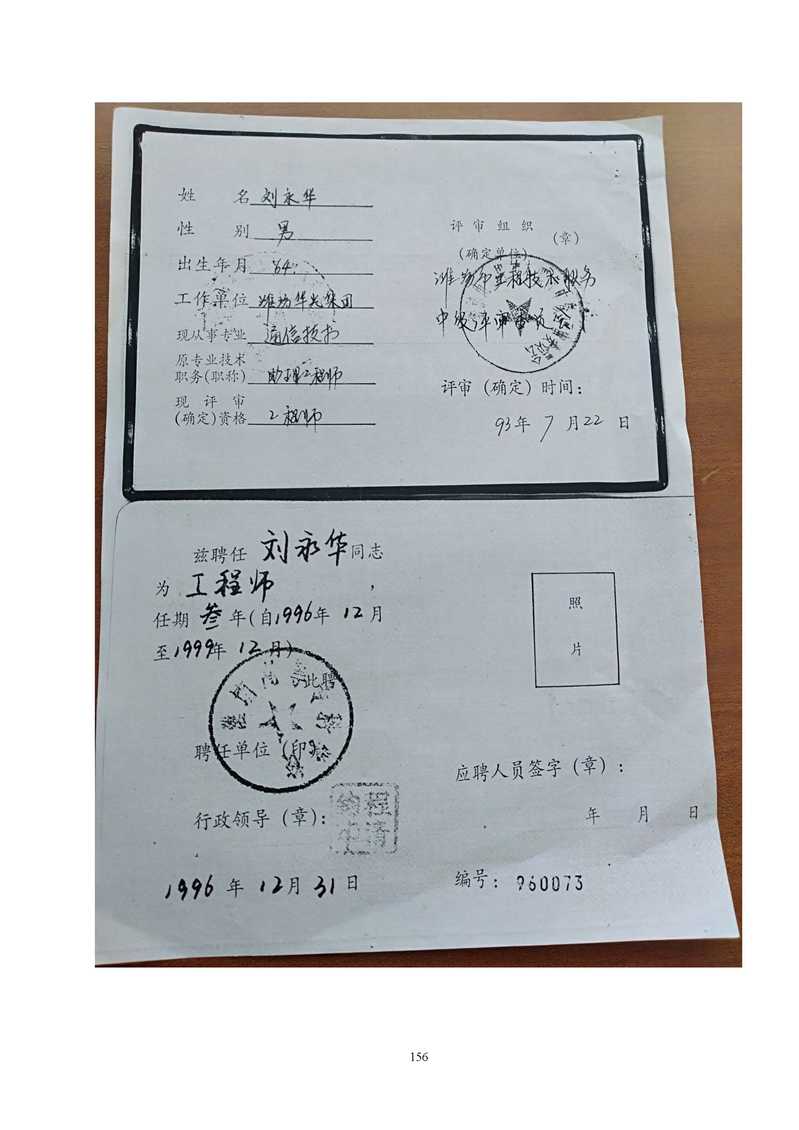 姓 名 刘永华
性 别 男
出生年月 64
工作单位 潍坊华光集团
现从事专业 通信技术
原专业技术
职务(职称) 助理工程师
现 评 审
(确定)资格 工程师
评 审 组 织
(确定单位) (章)
潍坊市工程技术职务
中级评审委员会
评审(确定)时间:
93年 7月22日
兹聘任 刘永华同志
为 工程师 ,
任期 叁 年(自1996年 12月
至1999年 12月)
此聘
聘任单位(印)
行政领导(章):
1996 年 12月 31日
照
片
应聘人员签字(章):
年 月 日
编号: 960073
156